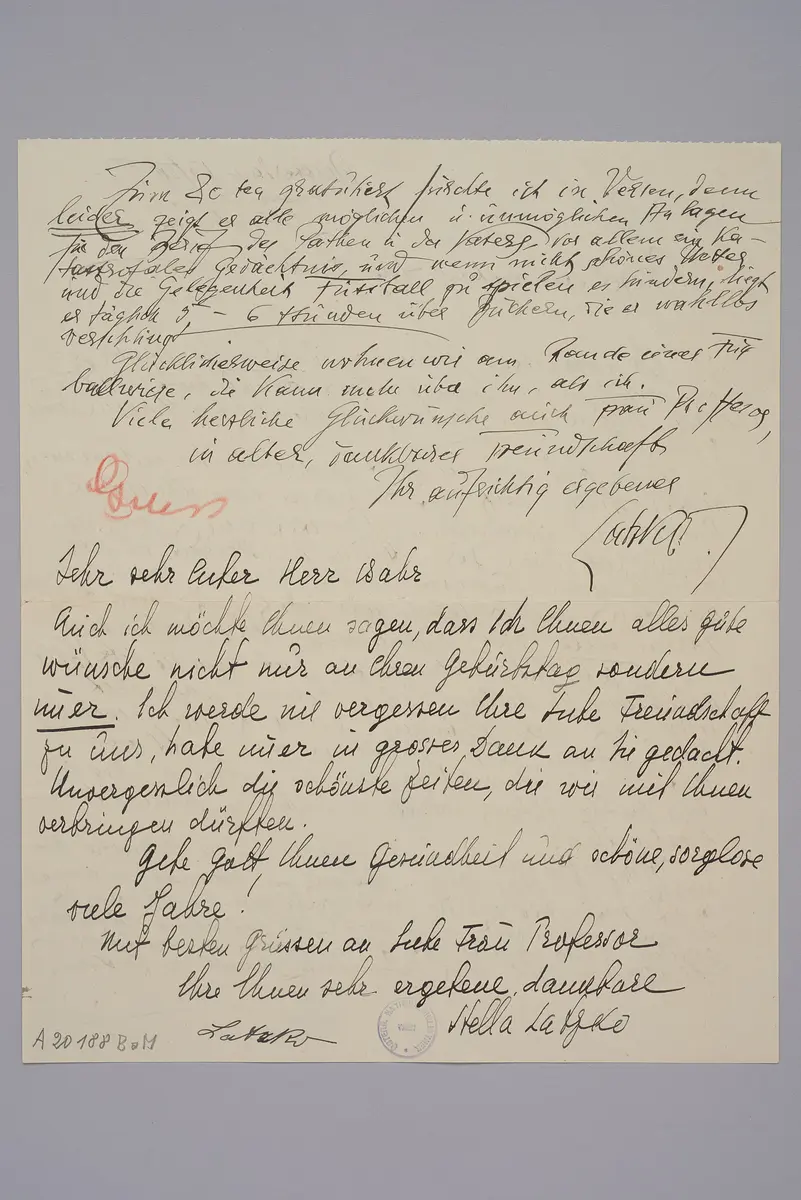 Zum 80 ten gratuliert, fürchte ich in Versen, denn
leider zeigt er alle möglichen u. unmöglichen Anlagen
für den Beruf des Pathen u. des Vaters, vor allem ein Ka-
tastrofales Gedächtnis, und wenn nicht schönes Wetter
und die Gelegenheit Fussball zu spielen es hindern, liegt
er täglich 5 – 6 Stunden über Büchern, die er wahllos
verschlingt.
Glücklicherweise wohnen wir am Rande einer Fuss
ballwiese, die kann mehr über ihn, als ich.
Viele herzliche Glückwünsche auch Frau Professor,
in alter, dankbarer Freundschaft
Ihr aufrichtig ergebener
Latzko
Sehr sehr lieber Herr Bahr
Auch ich möchte Ihnen sagen, dass Ich Ihnen alles gute
wünsche nicht nur an Ihren Geburtstag sondern
imer. Ich werde nie vergessen Ihre liebe Freundschaft
zu uns, habe imer in grosser Dank an Sie gedacht.
Unvergesslich die schönste Zeiten, die wir mit Ihnen
verbringen dürften.
Gebe Gott, Ihnen Gesundheit und schöne, sorglose
viele Jahre!
Mit besten Grüssen an liebe Frau Professor
Ihre Ihnen sehr ergebene, dankbare
Stella Latzko
Latzko
A 20188 BaM